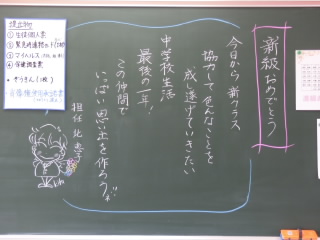 進級おめでとう
今日から新クラス
協力して色んなことを
成し遂げていきたい
中学校生活
最後の一年!
この仲間で
いっぱい思い出を作ろう
担任
提出物
① 生徒個人票
④ 保健調査票
ぞうきん(1枚)